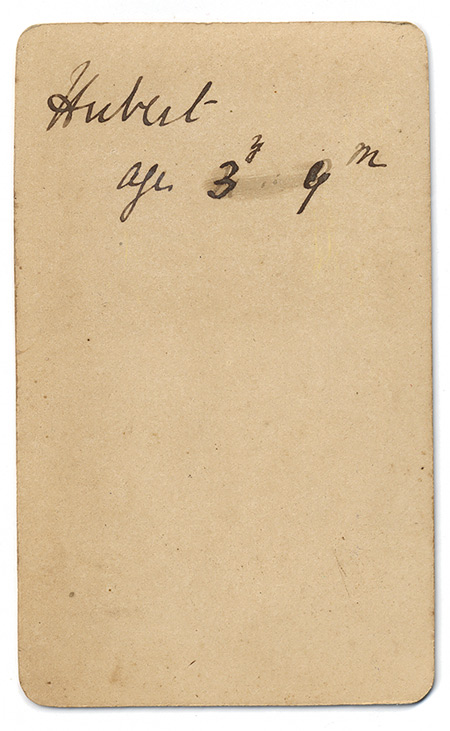 Hubert
age 3y 9m